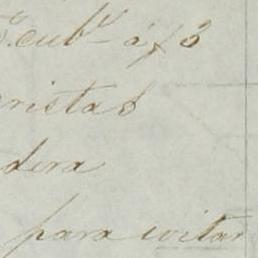 cub. á f 3
aristas
dera
para evitar